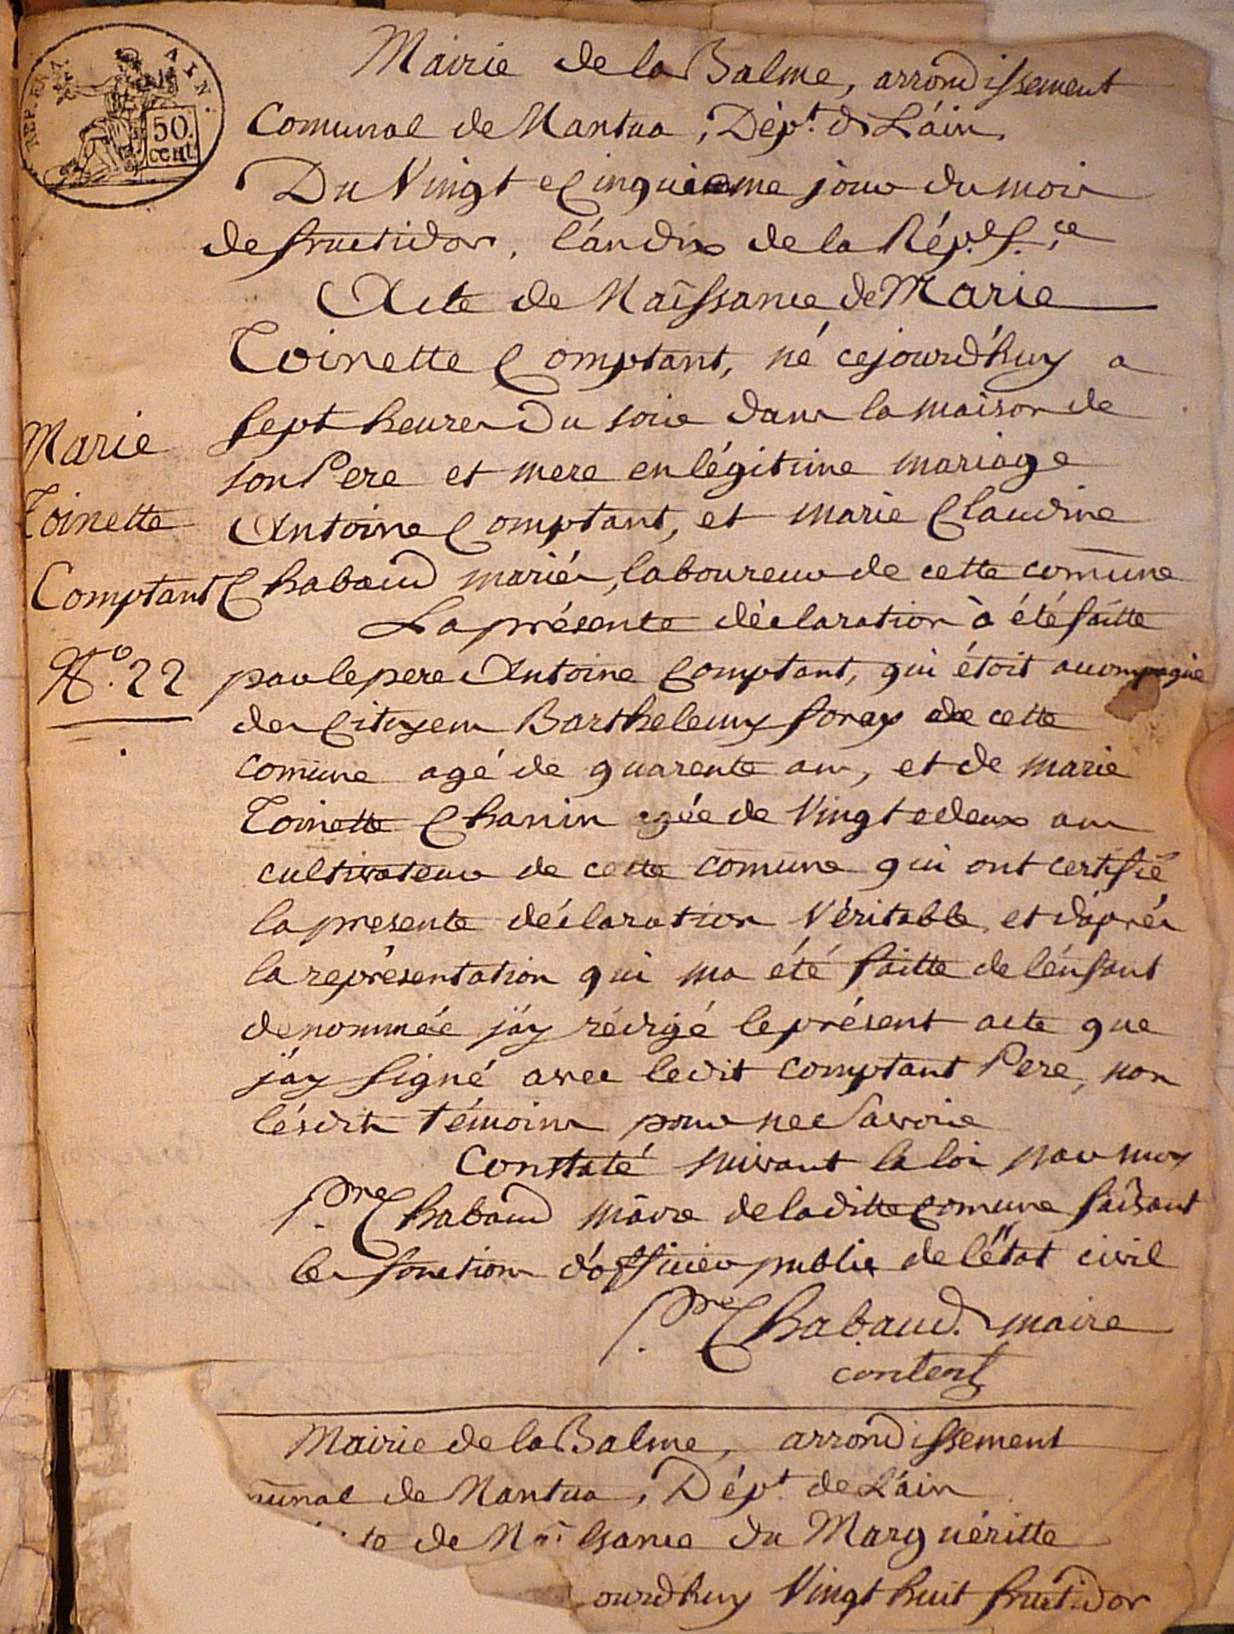 REP. FRA
AIN.
50.
CENT.
Mairie de la Balme, arrondissement
Comunal de Nantua, Dépt. de L'áin,
Du Vingt Cinquieme jour du mois
de fructidor, l'án dix de la Rép. f.ce
Acte de Naissance de Marie
Toinette Comptant, né cejourd'huy a
Sept heures Du soir dans la maison de
son Pere et mere en légitime mariage
Antoine Comptant, et marie Claudine
Chabaud mariés, laboureur de cette comune
La présente déclaration à été faitte
par le pere Antoine Comptant, qui étoit acompagné
des Citoyens Barthelemy foray de cette
comune agé de quarente ans, et de marie
Toinette Chanin agée de Vingt edeux ans
cultivateur de cette comune qui ont certifié
la presente déclaration Véritable, et d'áprés
la représentation qui ma été faitte de l'énfant
denommée j'áy rédigé le présent acte que
j'áy Signé avec ledit Comptant Pere, non
lésdits témoins pour ne Savoir
Constaté suivant la loi par moy
P.re Chabaud maire de laditte Comune faisant
les fonctions d'óffiicier public de l'état civil
P.re Chabaud. maire
content
Marie
Toinette
Comptant
N.º 22
Mairie de la Balme, arrondissement
munal de Nantua, Dépt. de L'áin
te de Naissance du Marguéritte
ourd'huy Vingt huit fructidor